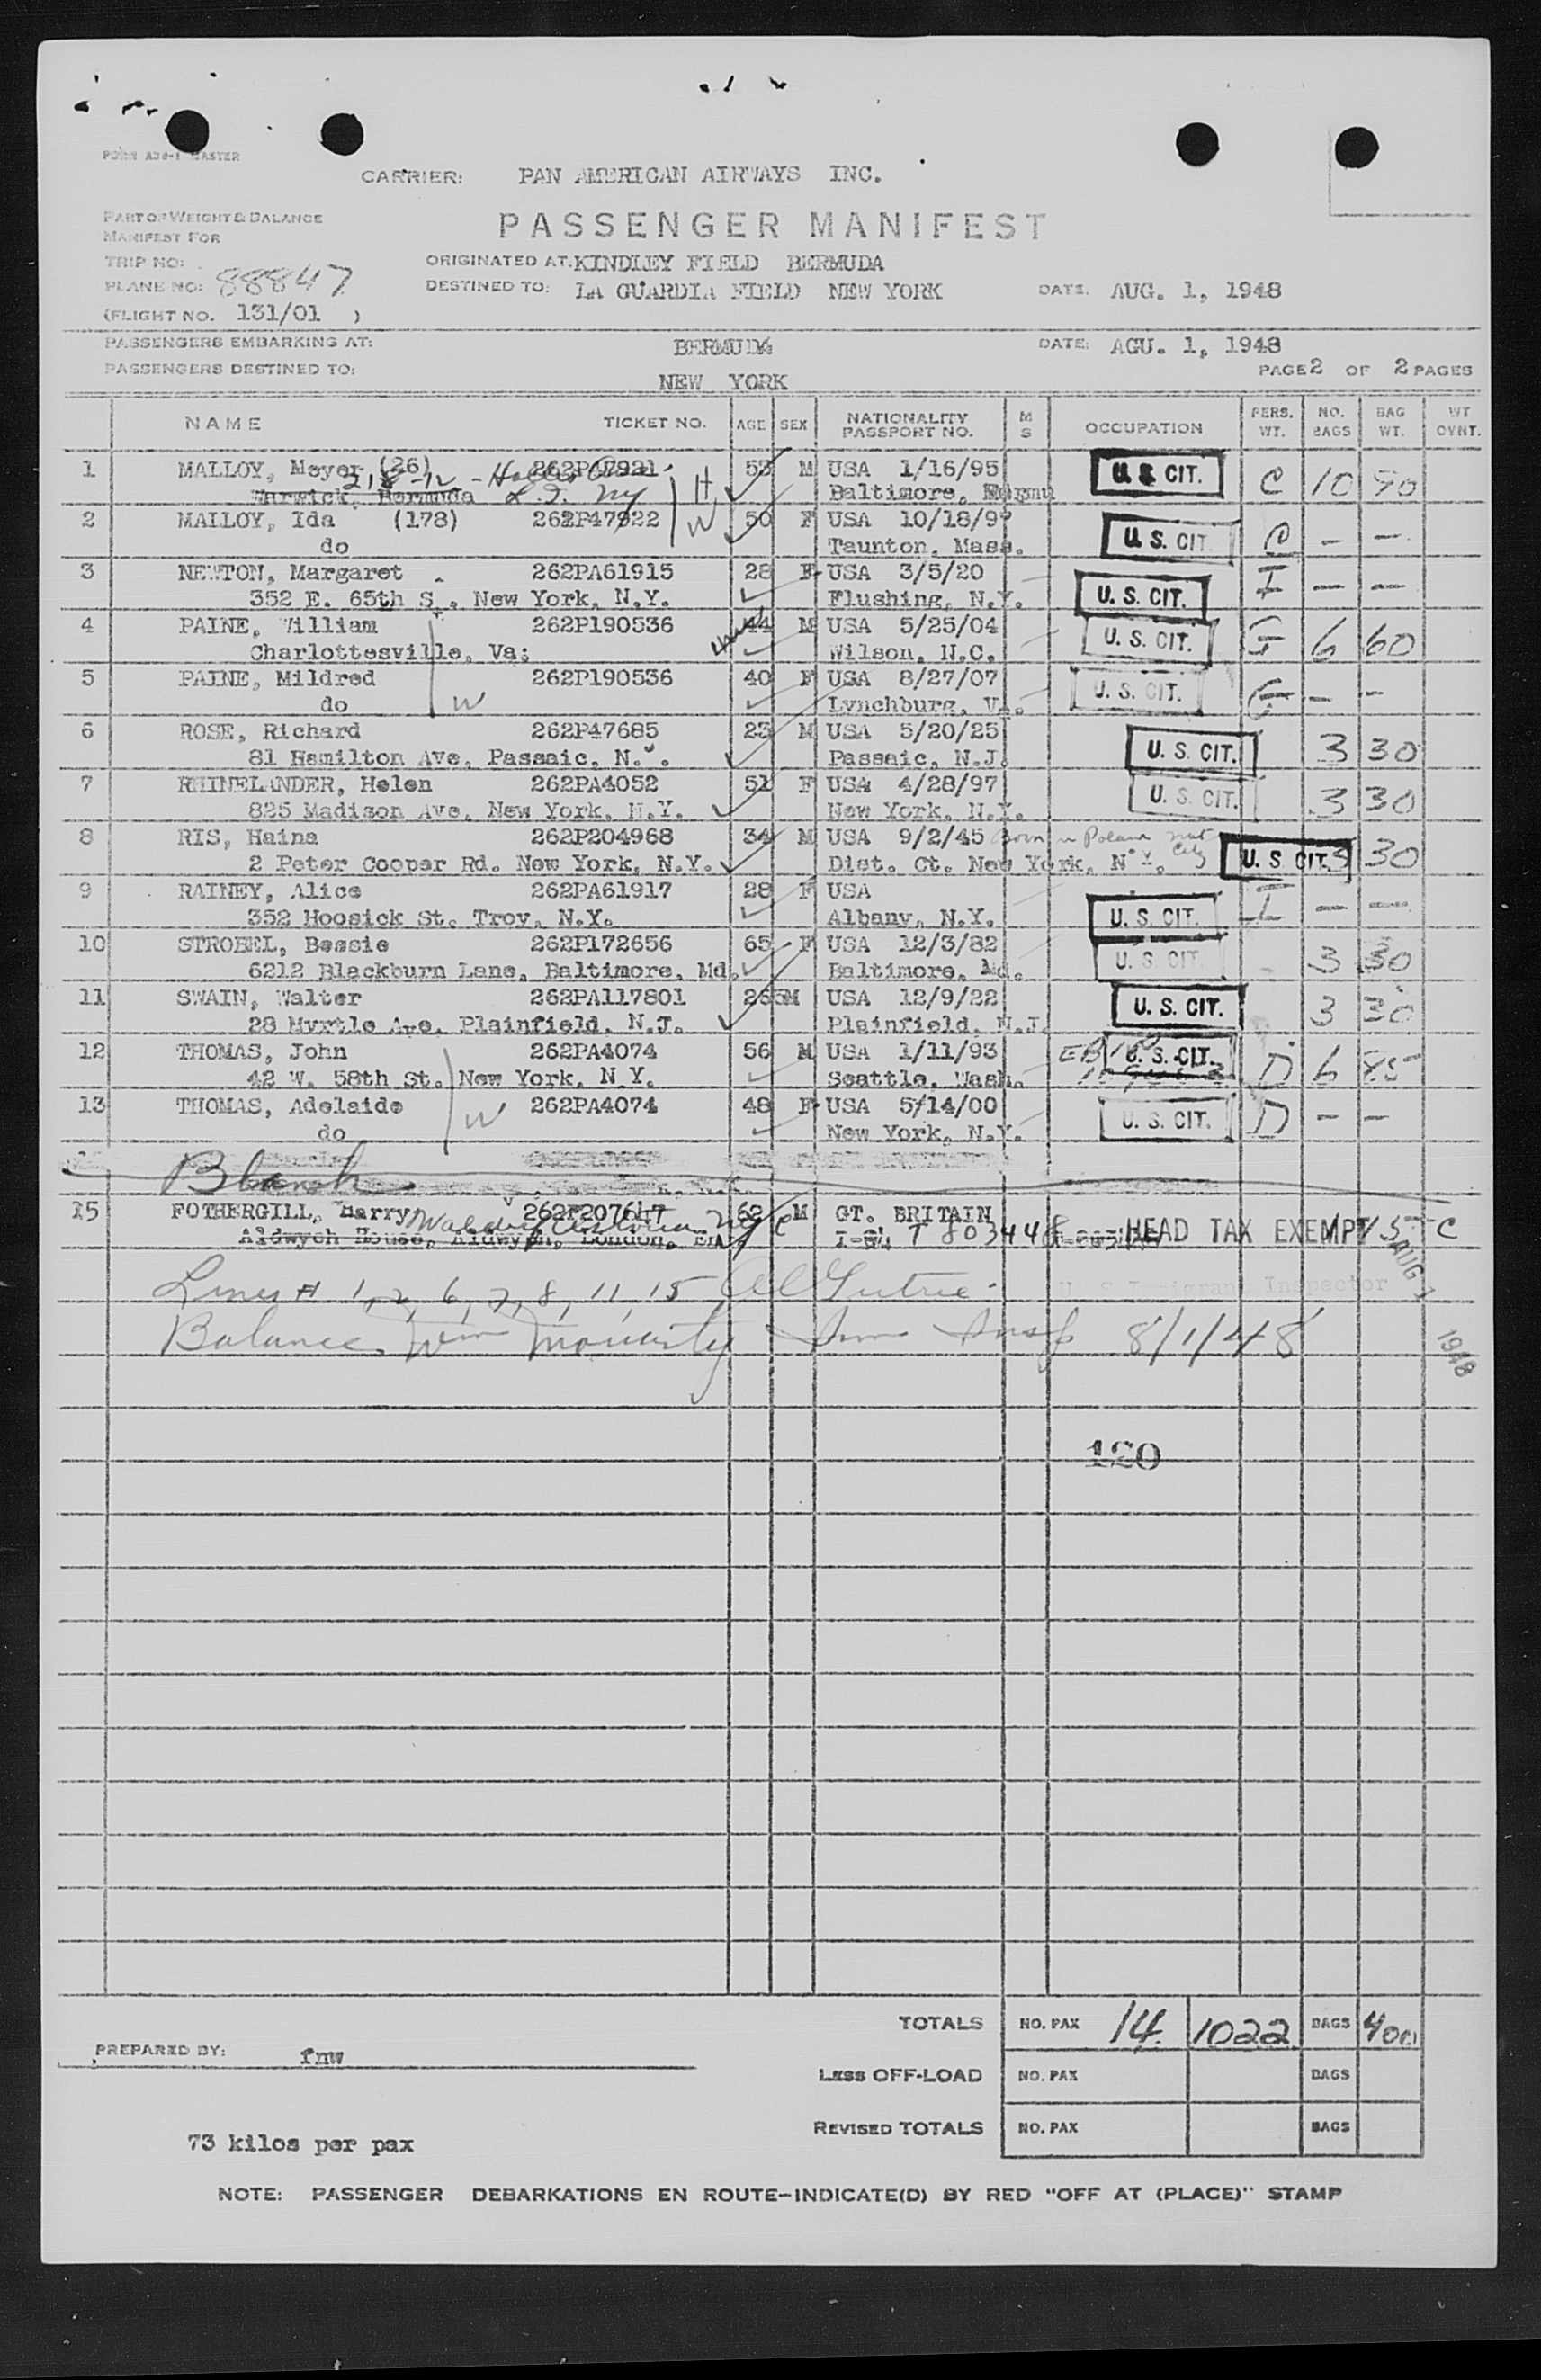 FORM A36-1 MASTER
CARRIER: PAN AMERICAN AIRWAYS INC.
PART OF WEIGHT & BALANCE
MANIFEST FOR
PASSENGER MANIFEST
TRIP NO:
ORIGINATED AT: KINDLEY FIELD BERMUDA
PLANE NO: 88847
DESTINED TO: LA GUARDIA FIELD NEW YORK DATE: AUG. 1, 1948
(FLIGHT NO. 131/01 )
PASSENGERS EMBARKING AT: BERMUDA DATE: AGU. 1, 1948
PASSENGERS DESTINED TO: NEW YORK PAGE 2 OF 2 PAGES
NAME TICKET NO. AGE SEX NATIONALITY PASSPORT NO. M S OCCUPATION PERS. WT. NO. BAGS BAG WT. WT CVNT.
1 MALLOY, Meyer (26) 262P47921 53 M USA 1/16/95 U.S. CIT. C 10 90
Warwick, Bermuda 218-12 - Hollis L.I. NY H Baltimore,
2 MALLOY, Ida (178) 262P47922 W 50 F USA 10/18/97 U.S. CIT. C — —
do Taunton, Mass.
3 NEWTON, Margaret 262PA61915 28 F USA 3/5/20 U.S. CIT. I — —
352 E. 65th S ., New York, N.Y. Flushing, N.Y.
4 PAINE, William 262P190536 44 M USA 5/25/04 U.S. CIT. G 6 60
Charlottesville, Va; Wilson, N.C.
5 PAINE, Mildred 262P190536 40 F USA 8/27/07 U.S. CIT. G — —
do W Lynchburg, Va.
6 ROSE, Richard 262P47685 23 M USA 5/20/25 U.S. CIT. 3 30
81 Hamilton Ave, Passaic, N.J. Passaic, N.J.
7 RHINELANDER, Helen 262PA4052 51 F USA 4/28/97 U.S. CIT. 3 30
825 Madison Ave, New York, N.Y. New York, N.Y.
8 RIS, Haina 262P204968 34 M USA 9/2/45 Born in Poland U.S. CIT. 3 30
2 Peter Cooper Rd. New York, N.Y. Dist. Ct. New York, N.Y.
9 RAINEY, Alice 262PA61917 28 F USA U.S. CIT. I — —
352 Hoosick St. Troy, N.Y. Albany, N.Y.
10 STROBEL, Bessie 262P172656 65 F USA 12/3/82 U.S. CIT. 3 30
6212 Blackburn Lane, Baltimore, Md. Baltimore, Md.
11 SWAIN, Walter 262PA117801 265M USA 12/9/22 U.S. CIT. 3 30
28 Myrtle Ave. Plainfield, N.J. Plainfield, N.J.
12 THOMAS, John 262PA4074 56 M USA 1/11/93 U.S. CIT. D 6 85
42 W. 58th St. New York, N.Y. Seattle, Wash.
13 THOMAS, Adelaide 262PA4074 48 F USA 5/14/00 U.S. CIT. D — —
do W New York, N.Y.
Blank
15 FOTHERGILL, Harry 262P207647 62 M GT. BRITAIN HEAD TAX EXEMPT 1 15 C
Aldwych House, Aldwych, London, Waldorf Astoria NY T 803448 AUG 1 1948
Lines # 1, 2, 6, 7, 8, 11, 15 U.S. Immigrant Inspector
Balance Wm Moriarty Imm Insp 8/1/48
120
TOTALS NO. PAX 14 1022 BAGS 400
PREPARED BY: fmw
Less OFF-LOAD NO. PAX BAGS
REVISED TOTALS NO. PAX BAGS
73 kilos per pax
NOTE: PASSENGER DEBARKATIONS EN ROUTE-INDICATE(D) BY RED "OFF AT (PLACE)" STAMP